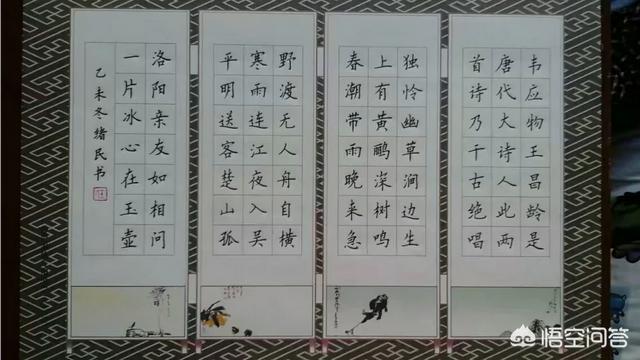 韦应物王昌龄是
唐代大诗人此两
首诗乃千古绝唱
独怜幽草涧边生
上有黄鹂深树鸣
春潮带雨晚来急
野渡无人舟自横
寒雨连江夜入吴
平明送客楚山孤
洛阳亲友如相问
一片冰心在玉壶
乙未冬绪民书
悟空问答